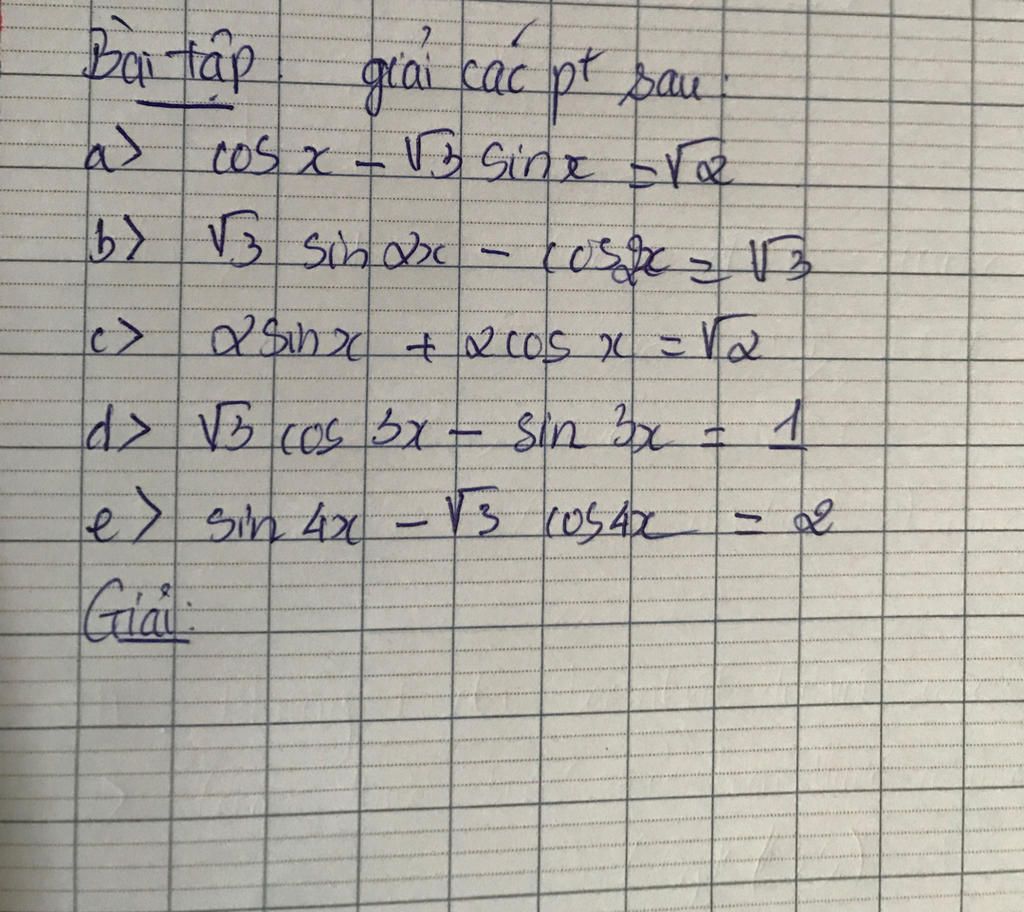 Bài tập: giải các pt sau:
a> cos x - √3 sin x = √2
b> √3 sin 2x - cos 2x = √3
c> 2 sin x + 2 cos x = √2
d> √3 cos 3x - sin 3x = 1
e> sin 4x - √3 cos 4x = 2
Giải: